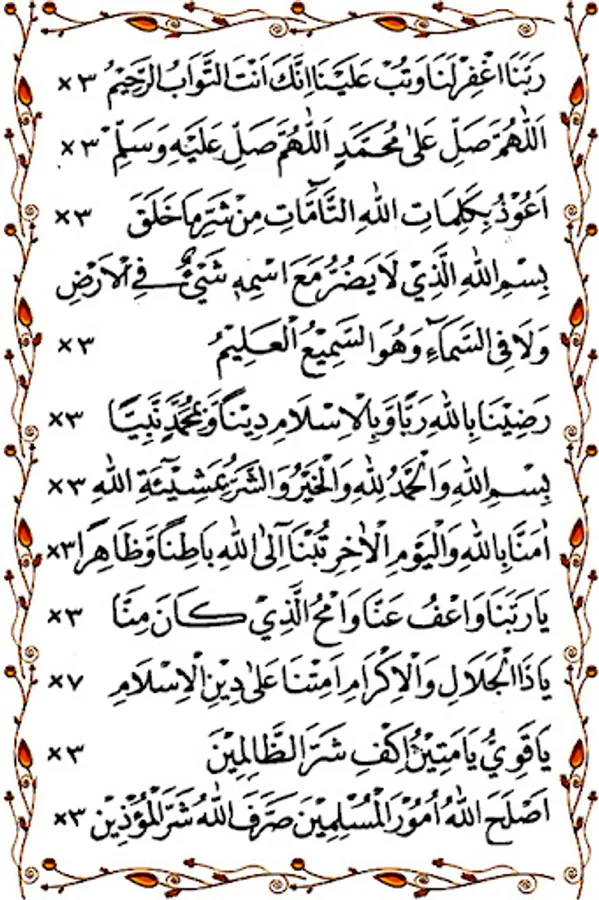 رَبَّنَا اغْفِرْ لَنَا وَتُبْ عَلَيْنَا اِنَّكَ اَنْتَ التَّوَابُ الرَّحِيْمُ ×٣
اَللّٰهُمَّ صَلِّ عَلٰى مُحَمَّدٍ اَللّٰهُمَّ صَلِّ عَلَيْهِ وَسَلِّمْ ×٣
اَعُوْذُ بِكَلِمَاتِ اللهِ التَّآمَّاتِ مِنْ شَرِّمَا خَلَقَ ×٣
بِسْمِ اللهِ الَّذِيْ لَا يَضُرُّ مَعَ اسْمِهٖ شَيْئٌ فِي الْاَرْضِ
وَلَا فِى السَّمَآءِ وَهُوَ السَّمِيْعُ الْعَلِيْمُ ×٣
رَضِيْنَا بِاللهِ رَبًّا وَبِالْاِسْلَامِ دِيْنًا وَبِمُحَمَّدٍ نَّبِيًّا ×٣
بِسْمِ اللهِ وَالْحَمْدُ لِلّٰهِ وَالْخَيْرُ وَالشَّرُّ بِمَشِيْئَةِ اللهِ ×٣
اٰمَنَّا بِاللهِ وَالْيَوْمِ الْاٰخِرِ تُبْنَا اِلَى اللهِ بَاطِنًا وَّظَاهِرًا ×٣
يَا رَبَّنَا وَاعْفُ عَنَّا وَامْحُ الَّذِيْ كَانَ مِنَّا ×٣
يَا ذَا الْجَلَالِ وَالْاِكْرَامِ اَمِتْنَا عَلٰى دِيْنِ الْاِسْلَامِ ×٧
يَا قَوِيُّ يَا مَتِيْنُ اِكْفِ شَرَّ الظَّالِمِيْنَ ×٣
اَصْلَحَ اللهُ اُمُوْرَ الْمُسْلِمِيْنَ صَرَّفَ اللهُ شَرَّ الْمُؤْذِيْنَ ×٣